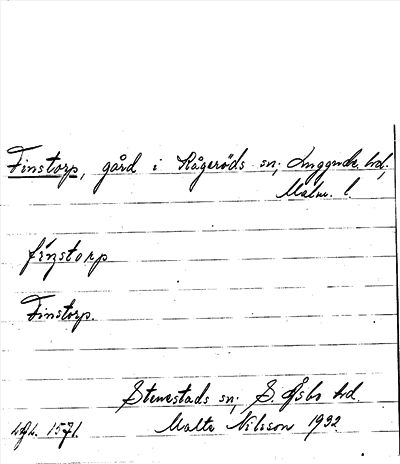 Finstorp, gård i Kågeröds sn; Luggude hd,
Malm. l.
finstorp
Finstorp.
Stenestads sn; S. Åsbo hd.
Malte Nilsson 1932